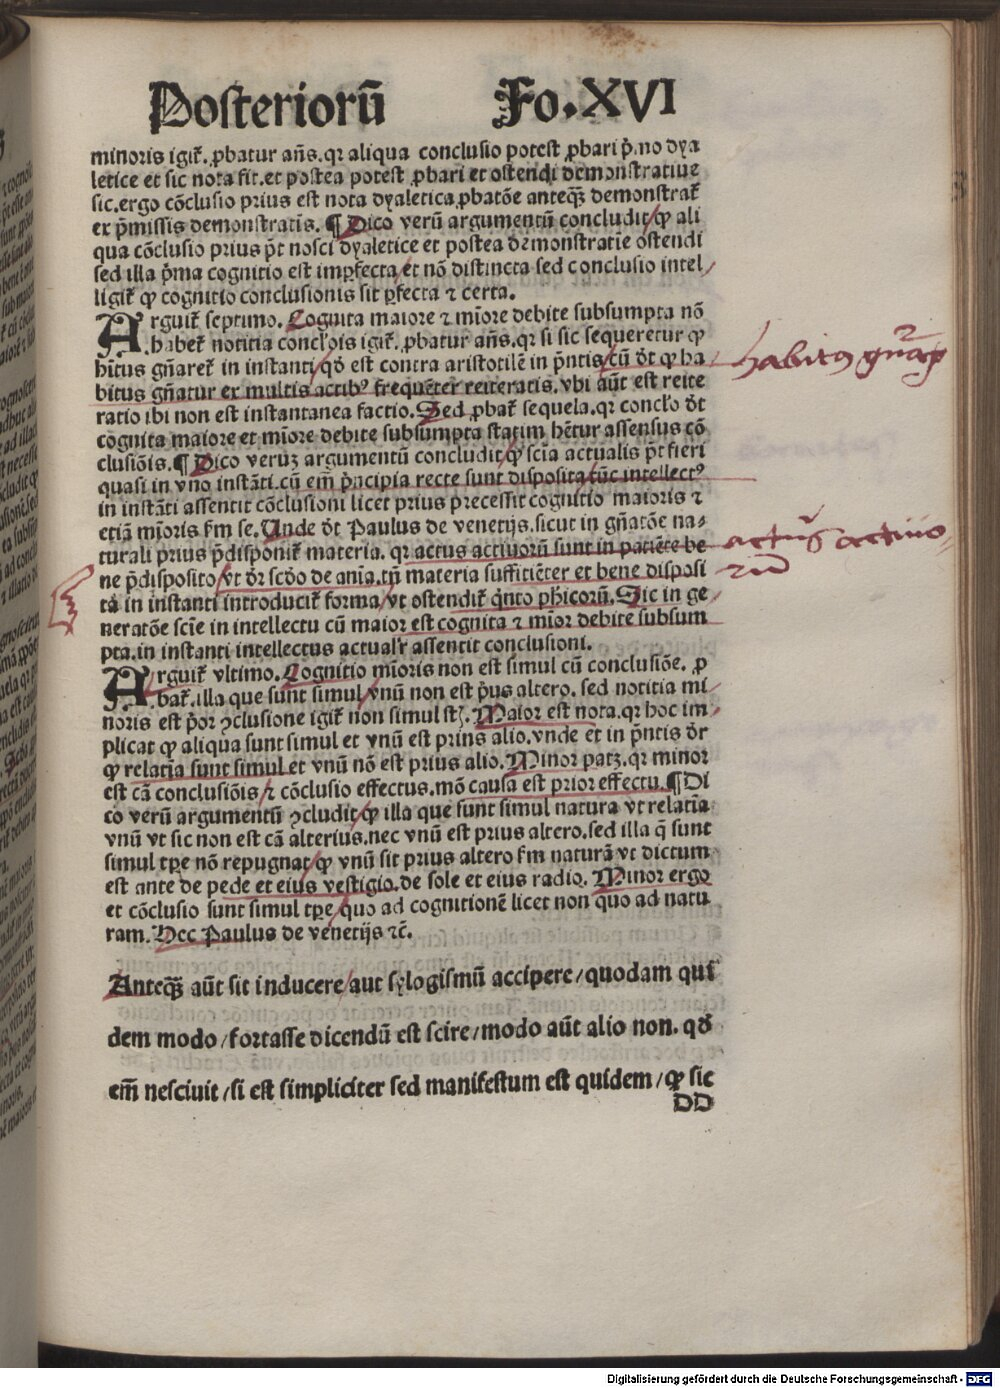 Posteriorū Fo.XVI
minoris igit᷑. ꝓbatur añs. qꝛ aliqua conclusio potest ꝓbari p̄. no dya
letice et sic nota fit. et postea potest ꝓbari et ostendi demonstratiue
sic. ergo cōclusio prius est nota dyaletica ꝓbatōe anteqꝫ demonstrat᷑
ex p̄missis demonstratīs. ¶ Dico verū argumentū concludit/ ꝙ ali
qua cōclusio prius p̄t nosci dyaletice et postea demonstratīe ostendi
sed illa p̄ma cognitio est imꝑfecta/ et nō distincta sed conclusio intel/
ligit᷑ ꝙ cognitio conclusionis sit ꝑfecta ⁊ certa.
Arguit᷑ septimo. Cognita maiore ⁊ mīore debite subsumpta nō
habet᷑ notitia concl'ois igit᷑. ꝓbatur añs. qꝛ si sic sequeretur ꝙ
hītus gñaret᷑ in instanti/ qd̄ est contra aristotilē in p̄ntis/ cū dt̄ ꝙ ha
bitus gñatur ex multis actibꝰ frequēter reiteratis. vbi aūt est reite
ratio ibi non est instantanea factio. Sed ꝓbat᷑ sequela. qꝛ concl'o dt̄
cognita maiore et mīore debite subsumpta statim hētur assensus cō
clusiōis. ¶ Dico veruꝫ argumentū concludit/ ꝙ scīa actualis p̄t fieri
quasi in vno instāti. cū em̄ p̄ncipia recte sunt disposita/ tūc intellectꝰ
in instāti assentit cōclusioni licet prius precessit cognitio maioris ⁊
etiā mīoris ẜm se. Unde dt̄ Paulus de venetijs. sicut in gñatōe na⸗
turali prius p̄disponit᷑ materia. qꝛ actus actiuorū sunt in patiēte be
ne p̄disposito/ vt dr̄ scd̄o de anīa. tn̄ materia suffitiēter et bene disposi
ta in instanti introducit᷑ forma/ vt ostendit᷑ q̄nto phicorū. Sic in ge
neratōe scīe in intellectu cū maior est cognita ⁊ mīor debite subsum
pta. in instanti intellectus actual'r assentit conclusioni.
Arguit᷑ vltimo. Cognitio mīoris non est simul cū conclusiōe. ꝓ
bat᷑. illa que sunt simul vnū non est p̄us altero. sed notitia mi/
noris est p̄or ꝯclusione igit᷑ non simul stꝫ. Maior est nota. qꝛ hoc im/
plicat ꝙ aliqua sunt simul et vnū est prius alio. vnde et in p̄ntis dr̄
ꝙ relatīa sunt simul et vnū nō est prius alio. Minor patꝫ. qꝛ minor
est cā conclusiōis/ ⁊ cōclusio effectus. mō causa est prior effectu. ¶ Di
co verū argumentū ꝯcludit/ ꝙ illa que sunt simul natura vt relatīa
vnū vt sic non est cā alterius. nec vnū est prius altero. sed illa q̄ sunt
simul tꝑe nō repugnat/ ꝙ vnū sit prius altero ẜm naturā vt dictum
est ante de pede et eius vestigio. de sole et eius radio. Minor ergo
et cōclusio sunt simul tꝑe/ quo ad cognitionē licet non quo ad natu
ram. Hec Paulus de venetijs ⁊c̄.
Anteqꝫ aūt sit inducere/ aut sylogismū accipere/ quodam qui
dem modo/ fortasse dicendū est scire/ modo aūt alio non. qd̄
em̄ nesciuit/ si est simpliciter sed manifestum est quidem/ ꝙ sic
DD
habitꝰ gñat᷑
actus actiuo
rū
Digitalisierung gefördert durch die Deutsche Forschungsgemeinschaft - DFG